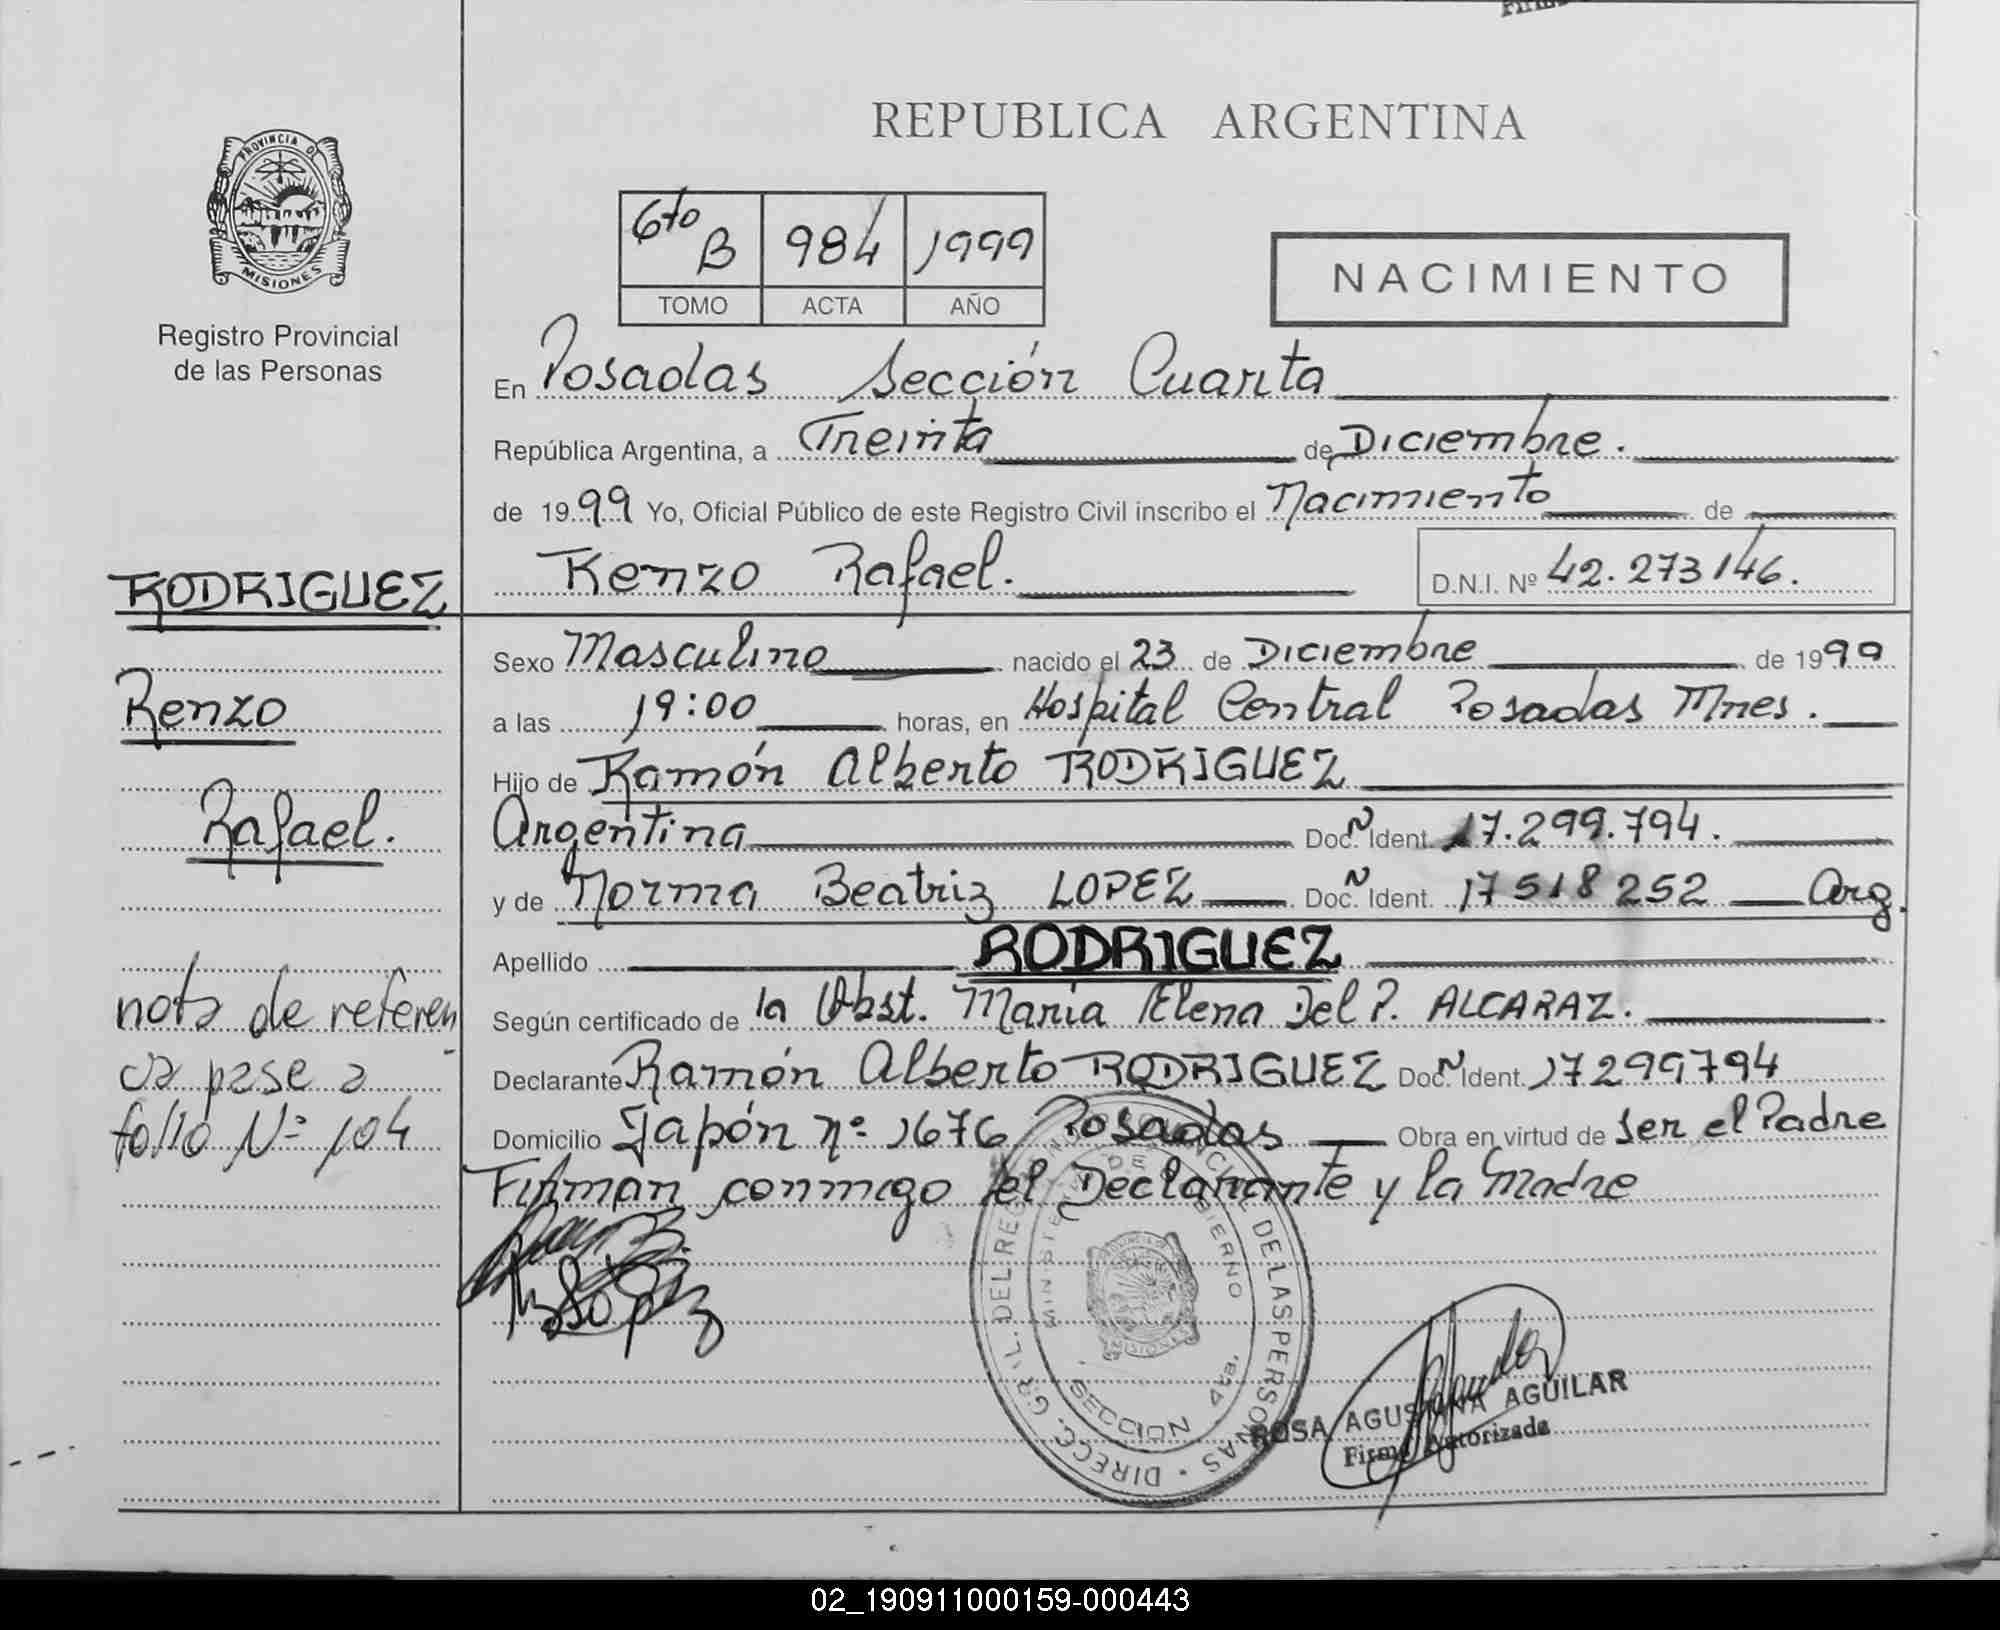 REPUBLICA ARGENTINA
PROVINCIA DE
MISIONES
Registro Provincial
de las Personas
6to B 984 1999
TOMO ACTA AÑO
NACIMIENTO
En Posadas Sección Cuarta
República Argentina, a Treinta de Diciembre.
de 1999 Yo, Oficial Público de este Registro Civil inscribo el Nacimiento de
Renzo Rafael. D.N.I. Nº 42.273146.
RODRIGUEZ
Renzo
Rafael.
nota de referen
cia pase a
folio Nº 104
Sexo Masculino nacido el 23 de Diciembre de 1999
a las 19:00 horas, en Hospital Central Posadas Mnes.
Hijo de Ramón Alberto RODRIGUEZ
Argentina Doc. N Ident. 17.299.794.
y de Norma Beatriz LOPEZ Doc. N Ident. 17518252 Arg.
Apellido RODRIGUEZ
Según certificado de la Obst. María Elena Del P. ALCARAZ.
Declarante Ramón Alberto RODRIGUEZ Doc. N Ident. 17299794
Domicilio Japón nº 1676 Posadas Obra en virtud de ser el Padre
Firman conmigo el Declarante y la Madre
López
DIRECC. GRAL. DEL REG. PROVINCIAL DE LAS PERSONAS
MINISTERIO DE GOBIERNO
SECCION 4ta.
MISIONES
ROSA AGUSTINA AGUILAR
Firma Autorizada
02_190911000159-000443